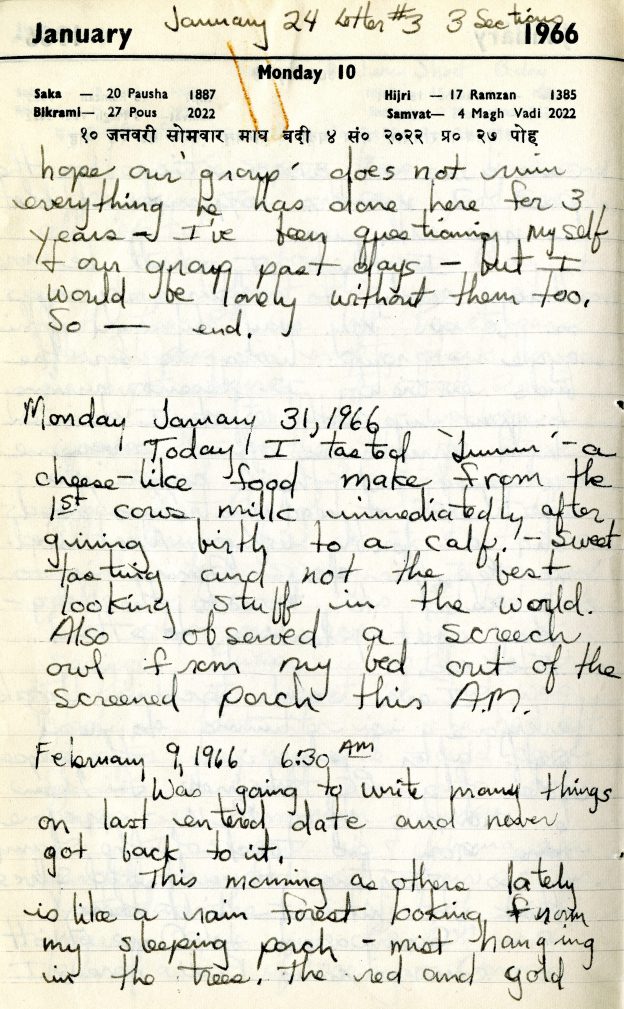 January 24 Letter #3 3 Sections
January 1966
Monday 10
Saka — 20 Pausha 1887 Hijri — 17 Ramzan 1385
Bikrami — 27 Pous 2022 Samvat — 4 Magh Vadi 2022
१० जनवरी सोमवार माघ बदी ४ सं० २०२२ प्र० २७ पोह
hope our 'group' does not ruin
everything he has done here for 3
years — I've been questioning myself
+ our group past days — but I
would be lonely without them too.
So — end.
Monday January 31, 1966
Today I tasted — a
cheese-like food make from the
1st cows milk immediately after
giving birth to a calf. — Sweet
tasting and not the best
looking stuff in the world.
Also observed a screech
owl from my bed out of the
screened porch this A.M.
February 9, 1966 6:30 AM
Was going to write many things
on last entered date and never
got back to it.
This morning as others lately
is like a rain forest looking from
my sleeping porch — mist hanging
in the trees. The red and gold